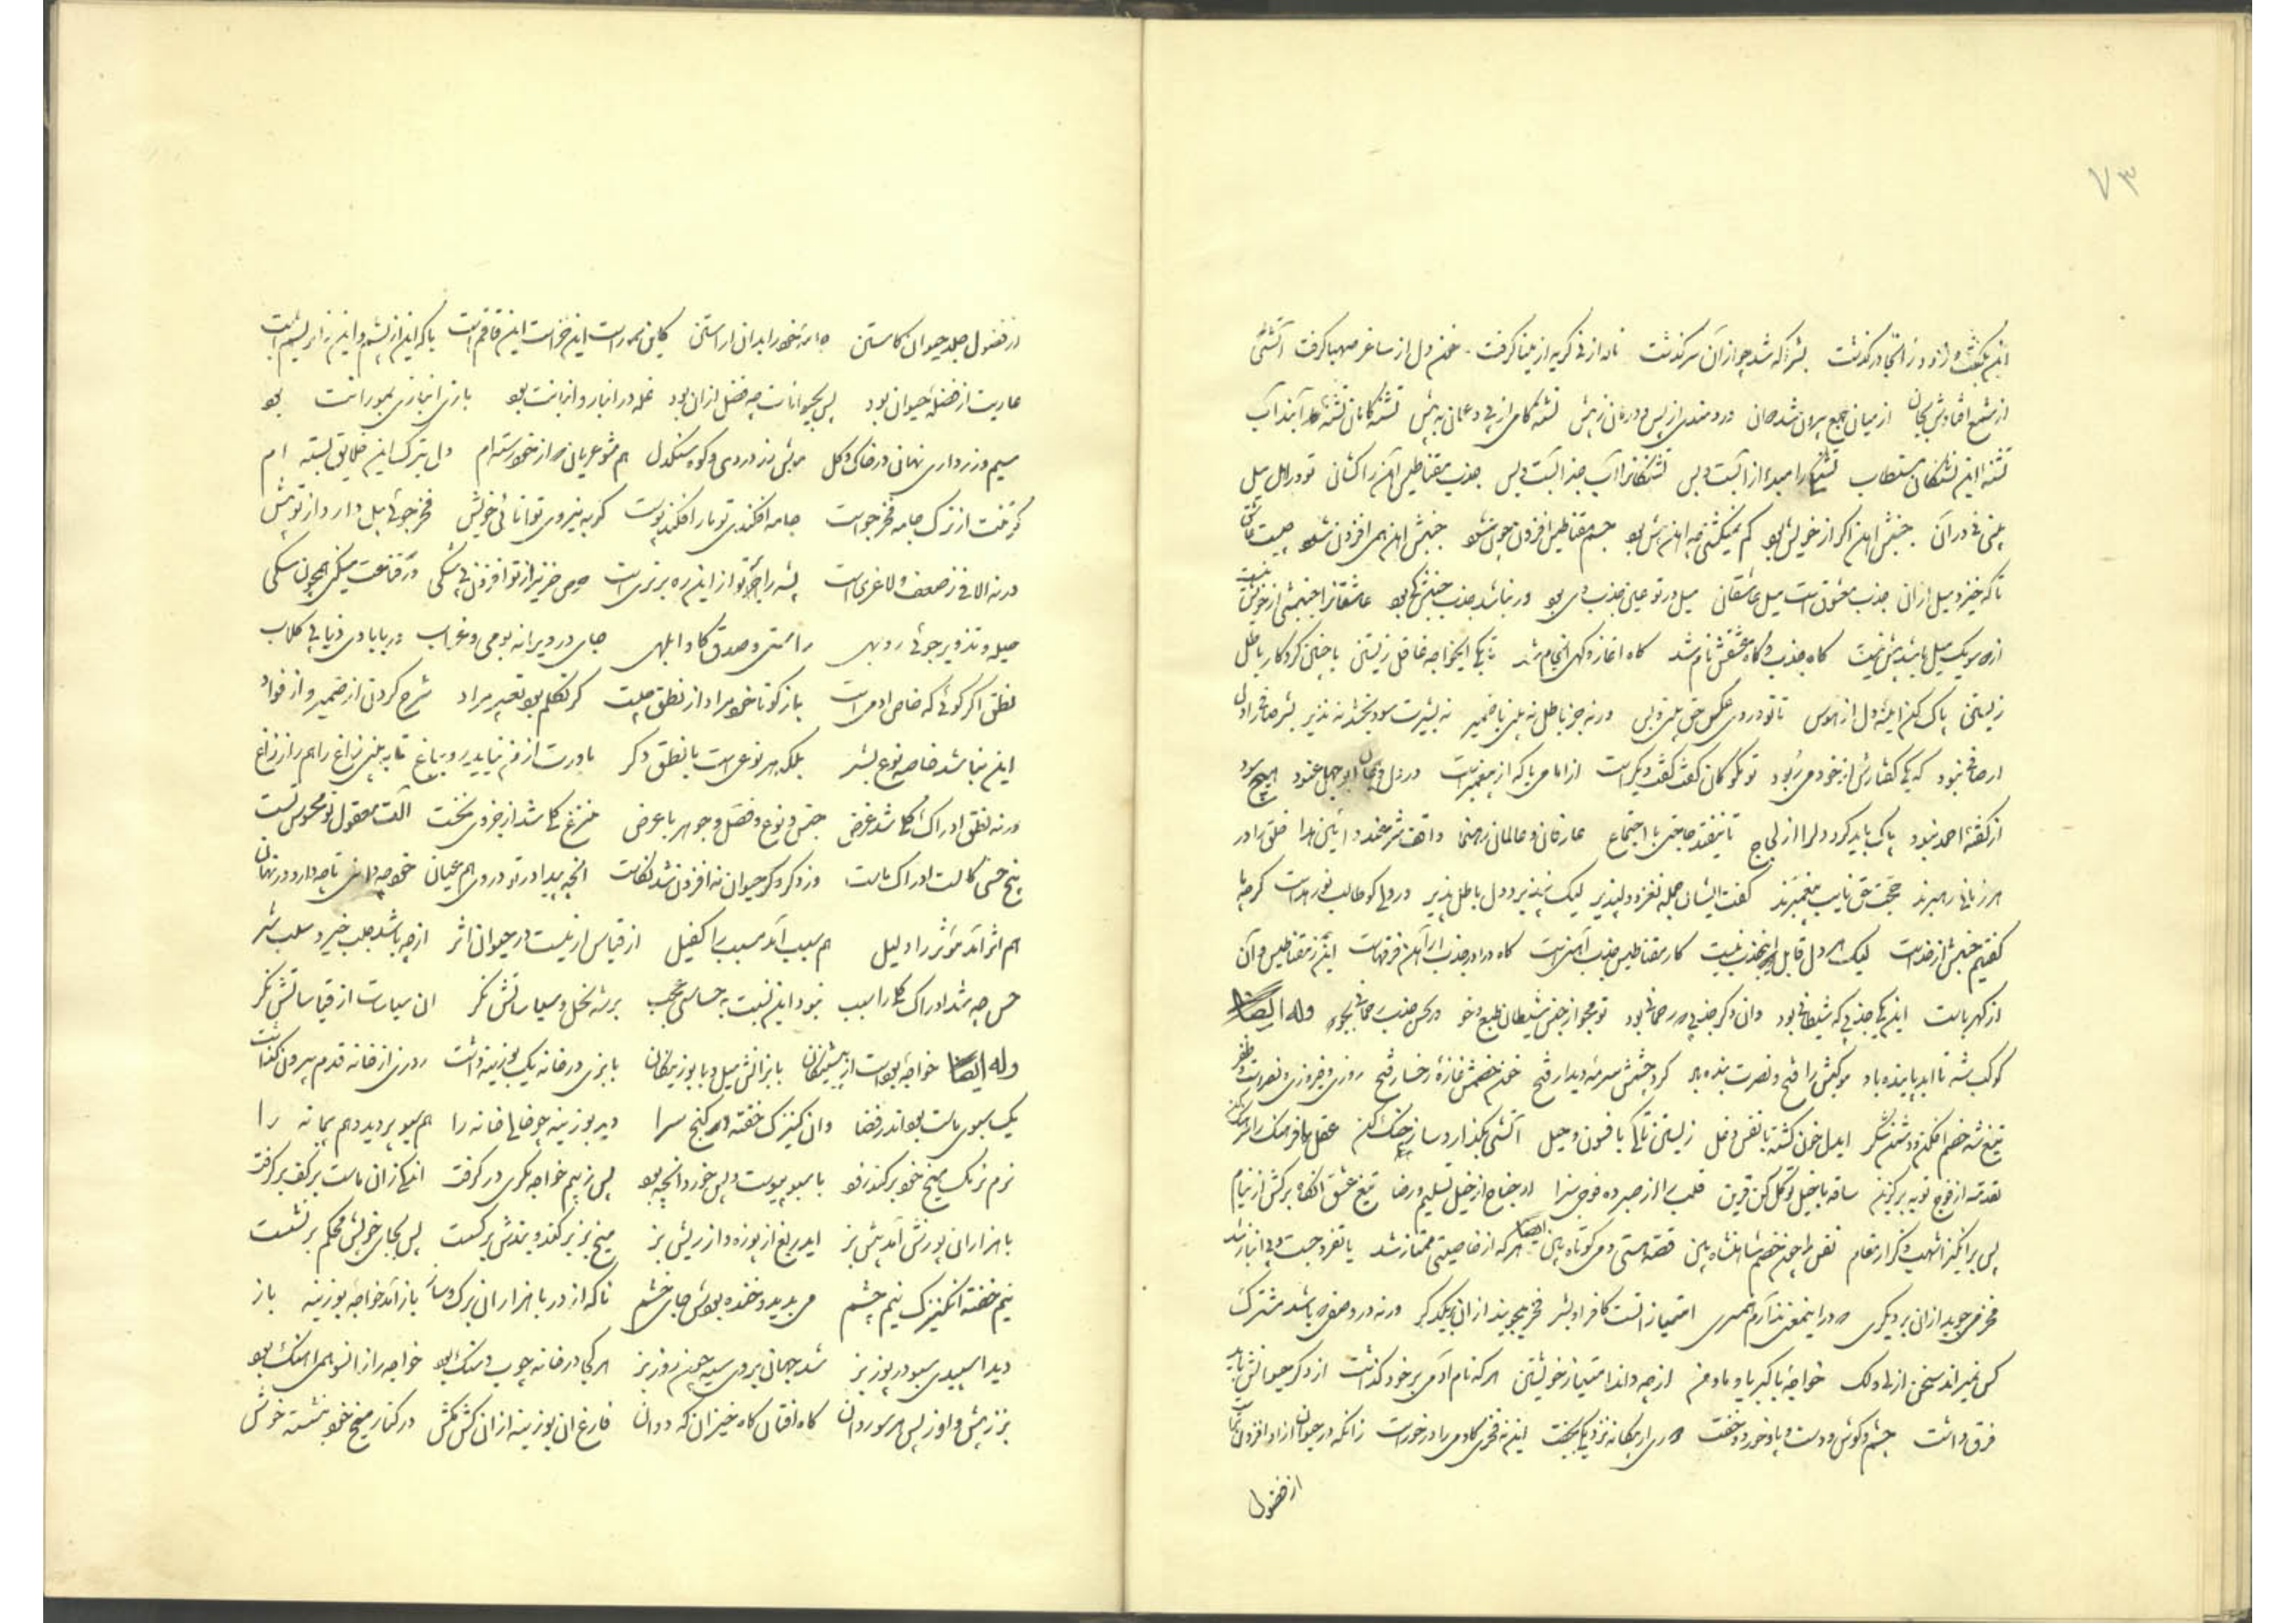 ۷۳
این بگفت و زود ز آنجا درگذشت بشر آنکه شد چو از آن سرگذشت ناله از نی گریه از مینا گرفت خون دل از ساغر صهبا گرفت آتشی
از میان جمع بیرون شد دردمندی از پس و درمان ز پیش تشنه کامی از پی و عمان به پیش تشنه کامان تشنه آیند آب
تشنه این تشنگان مستطاب را میدء از آبست و بس تشنگانرا آب جذ آبست و بس جذب مقناطیس آهن را کشان تو در اهل میل
بینی نی در آن جنبش آهن اگر از خویش بود کم نمیگشتی چه آهن بیش بود جسم مقناطیس افزون چون شود جنبش آهن همی افزون شود چیست
تا که خیزد میل از آن جذب معشوق است میل عاشقان میل در تو عین جذب وی بود ور نباشد جذب جنبش کی بود عاشقانرا جنبشی از خویش نیست
یک میل باشد بیش نیست گاه جذب و گاه عشقش نام شد گاه آغاز و گهی انجام شد تا بکی ایخواجه غافل زیستن با چنین کردگار باطل
زیستن پاک کن آیینه دل از هوس تا تو در وی عکس حق بینی و بس ورنه جز باطل نه بینی با ضمیر نه بشیرت سود بخشد نه نذیر
نبود که کفتارش از خود می ربود تو مگو کان گفت گفت دیگر است از امامی یا که از پیغمبر است در دل ابوجهل عنود هیچ سود
از گفته احمد نبود پاک باید کرد دلرا از لجاج تا نیفتد حاجتی با احتجاج عارفان و عالمان رهنما واقف شرعند و آیین هدا خلق را در
هر زمانی رهبرند حجت حق نایب پیغمبرند گفت ایشان جمله نغز و دلپذیر لیک نپذیرد دل باطل پذیر در دلی کو طالب نور هداست گرچه با
گفتیم جنبش از خداست لیک هر دل قابل این جذب نیست کار مقناطیس جذب آهنست کاه را در جذب از آهن فرقهاست این ز مقناطیس و آن
از کهرباست این یکی جذبی که شیطانی بود وان دگر جذبی که رحمانی بود تو مجو از جنس شیطان طبع و خو در کس جذب رحمانی بجو وله ایضا
کوکب شه تا ابد پاینده باد موکبش را فتح و نصرت بنده باد گرد جیشش سرمه دیدار فتح خون خصمش غازه رخسار فتح روزی و فیروزی و نصرت و ظفر
تیغ شه خصم افکن و دشمن شکر ایدل خون گشته با نقس دغل زیستن تا کی با فسون و حیل آشتی بگذار و ساز جنگ کن عقل با فرهنگ را
مقدمه از فوج توبه برگزین ساقه با خیل توکل کن قرین قلب را از صبر ده فوجی سزا در جناح از خیل تسلیم و رضا تیغ عشق آنگاه برکش از نیام
پس برانگیز اشهب و کن انتقام نفس را چون خصم شاهنشاه بین قصه هستی و می کوتاه بین ایضا هر که از خاصیتی ممتاز شد یا تفرد جست و بی انباز شد
فخر می جوید از آن بر دیگری در اینمعنی ندارم همسری امتیاز آنست کافراد بشر فخر میجویند از آن بر یکدگر ورنه در وصفی که باشد مشترک
کس نمیراند سخن از لی و لک خواجه با کبر و با باد و من از چه داند امتیاز خویشتن هر که نام آدمی بر خود گذاشت از دگر حیوانش باید
فرق داشت چشم و گوش و دست و پا و خورد و خفت نزدیک جفت این نه فخری کادمی را در خور است زانکه در حیوان از او افزون
از فضول
از فضول جلد حیوان کاستن خود را بدان آراستن کاین سمور است این خز است این قاقم است یا که این از پشم و این ز ابریشم است
عاریت از فضله حیوان بود پس بحیوانات چه فضل از آن بود غله در انبار و انبانت بود بازی انبازی بمورانت بود
سیم و زر داری نهان در خاک و گل موش زر دزدی و کوه سنگدل هم شو عریان که از خود رسته ام دل بترک این خلایق بسته ام
گر تنت از ترک جامه فخر جو است جامه افکندی تو مار افکنده پوست گر به نیروی توانائی خویش فخر جوئی پیل دارد از تو بیش
ورنه لافی ز ضعف و لاغریست پشه را بر تو از این ره برتریست حرص خنزیر از تو افزون بی شکی در قناعت مسکنی همچون سگی
حیله و تزویر جوئی روبهی راستی و صدق گاو ابلهی جای در ویرانه بومی و غراب در بآبادی دنیا کلاب
نطق اگر گوئی که خاص آدمی است باز گو تا خود مراد از نطق چیست گر تکلم بود تعبیر مراد شرح کردن از ضمیر و از فواد
این نباشد خاصه نوع بشر بلکه هر نوعی است با نطق دگر باورت از من نیاید رو بباغ تا به بینی زاغ را همراز زاغ
ورنه نطق ادراک کلی شد غرض جنس و نوع و فصل و جوهر با عرض منتزع کلی شد از جزوی نخست آلت معقول تو محسوس تست
پنج حس کالت ادراک ماست در دگر حیوان نه افزون شد نکاست آنچه پیدا در تو در وی هم عیان خود چه دانی تا چه دارد در نهان
هم اثر آمد مؤثر را دلیل هم سبب آمد مسبب را کفیل از قیاس ار نیست در حیوان اثر از چه باشد جلب خیر و سلب شر
حس چه شد ادراک کلی را سبب نبود این نسبت به حساسی عجب برشه نحل و سیاساتش نگر آن سیاست از قیاساتش نگر
وله ایضا خواجه بود است از پیشینگان با بزانش میل و با بوزینگان با بزی در خانه یک بوزینه داشت روزی از خانه قدم بیرون گذاشت
یک سبوی ماست بود اندر فضا وان کنیزک خفته در کنج سرا دید بوزینه چو خالی خانه را هم سبو پر دید و هم پیمانه را
نرم نرمک میخ خود برکند زود با سبو پیوست و پس خورد آنچه بود پس ز بیم خواجه مکری در گرفت اندکی زان ماست بر کف برگرفت
با هزاران پوزش آمد پیش بز ایدریغ از پوزه و از ریش بز میخ بز برکند و بندش برگسست پس بجای خویش محکم برنشست
نیم خفته آنکنیزک نیم چشم می بدید و خنده بودش جای خشم ناکه از در با هزاران برگ و ساز باز آمد خواجه بوزینه باز
دید اسپیدی سبو در پوز بز شد جهان بر وی سیه چون روز بز هر کجا در خانه چوب و سنگ بود خواجه را ز آنسو همی آهنگ بود
بز ز پیش و او ز پس هر سو روان گاه افتان گاه خیزان که دوان فارغ آن بوزینه از آن کش مکش در کنار میخ خود بنشسته خوش